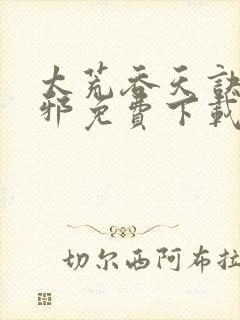 大荒吞天诀
邪免费下载
切尔西阿布拉